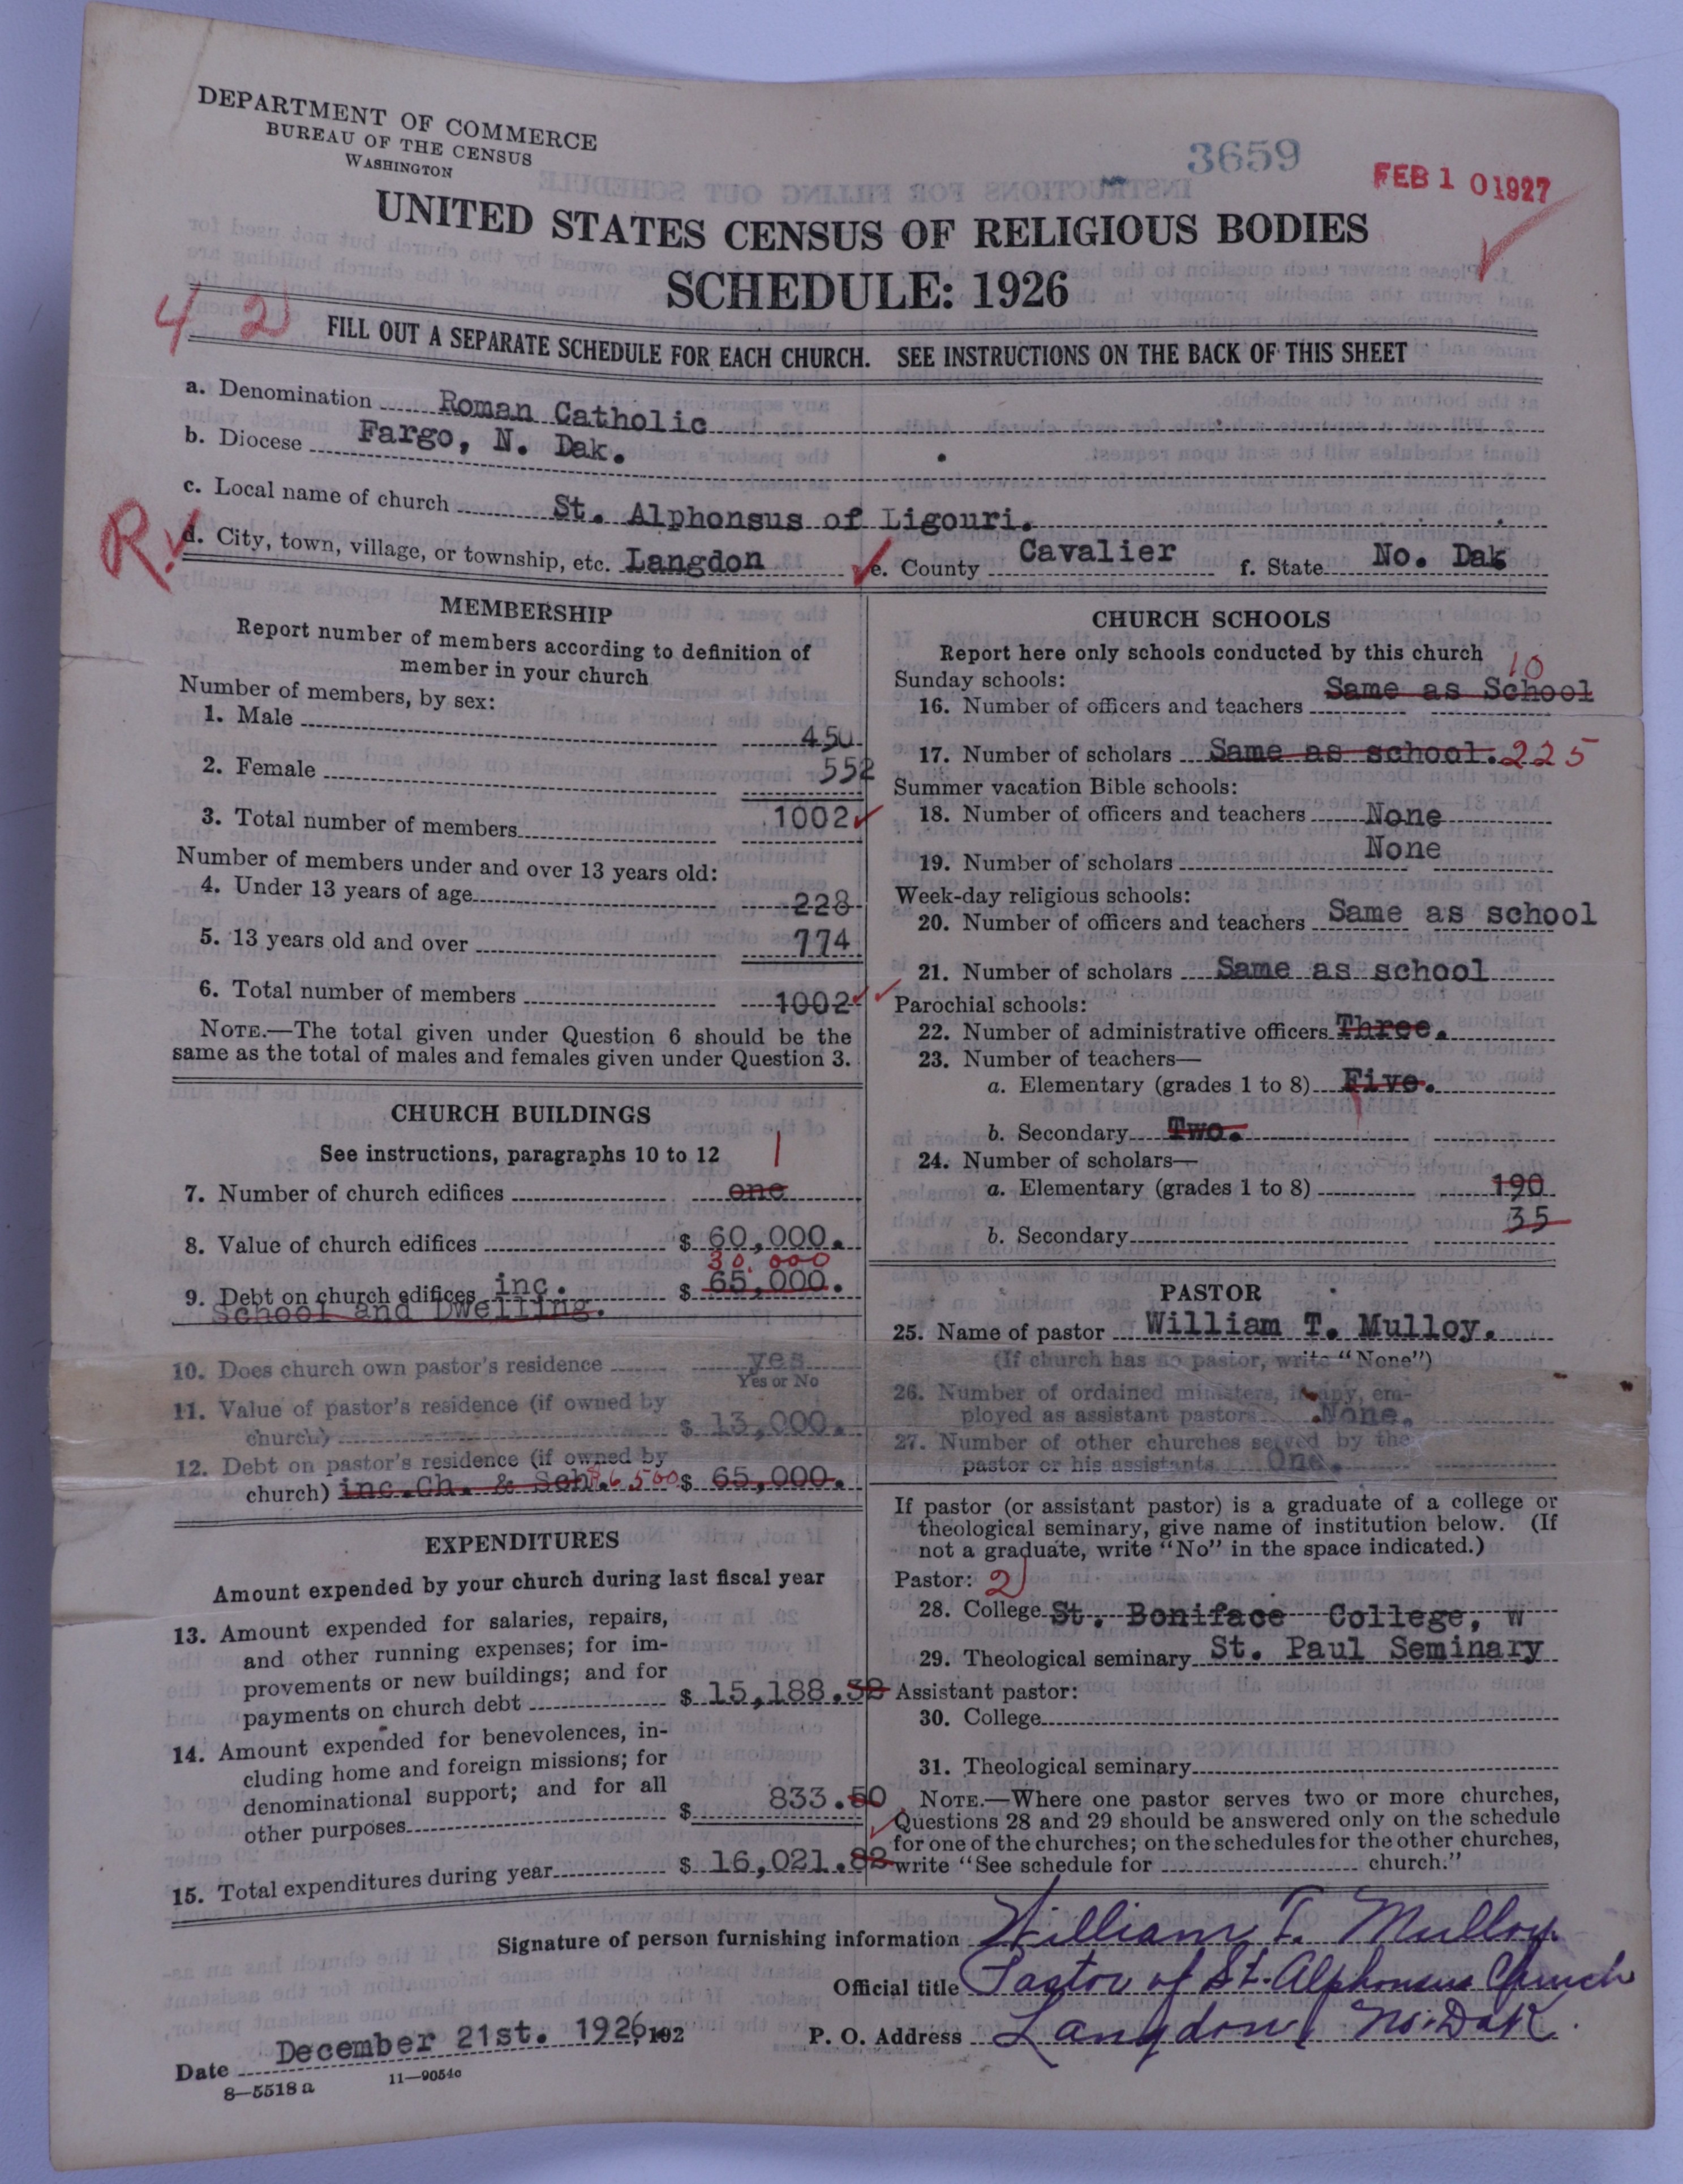 DEPARTMENT OF COMMERCE
BUREAU OF THE CENSUS
WASHINGTON
3659
FEB 10 1927
UNITED STATES CENSUS OF RELIGIOUS BODIES
SCHEDULE: 1926
4 2
FILL OUT A SEPARATE SCHEDULE FOR EACH CHURCH. SEE INSTRUCTIONS ON THE BACK OF THIS SHEET
a. Denomination Roman Catholic
b. Diocese Fargo, N. Dak.
c. Local name of church St. Alphonsus of Ligouri.
R
d. City, town, village, or township, etc. Langdon e. County Cavalier f. State No. Dak
MEMBERSHIP
Report number of members according to definition of
member in your church
Number of members, by sex:
1. Male 450
2. Female 552
3. Total number of members 1002
Number of members under and over 13 years old:
4. Under 13 years of age 228
5. 13 years old and over 774
6. Total number of members 1002
NOTE.—The total given under Question 6 should be the
same as the total of males and females given under Question 3.
CHURCH BUILDINGS
See instructions, paragraphs 10 to 12 1
7. Number of church edifices one
8. Value of church edifices $ 60,000.
30,000
9. Debt on church edifices inc. $ 65,000.
School and Dwelling.
10. Does church own pastor's residence yes
Yes or No
11. Value of pastor's residence (if owned by
church) $ 13,000.
12. Debt on pastor's residence (if owned by
church) inc.Ch. & Sch. $6500 $ 65,000.
EXPENDITURES
Amount expended by your church during last fiscal year
13. Amount expended for salaries, repairs,
and other running expenses; for im-
provements or new buildings; and for
payments on church debt $ 15,188.32
14. Amount expended for benevolences, in-
cluding home and foreign missions; for
denominational support; and for all
other purposes $ 833.50
15. Total expenditures during year $ 16,021.82
CHURCH SCHOOLS
Report here only schools conducted by this church
Sunday schools: 10
16. Number of officers and teachers Same as School
17. Number of scholars Same as school. 225
Summer vacation Bible schools:
18. Number of officers and teachers None
19. Number of scholars None
Week-day religious schools:
20. Number of officers and teachers Same as school
21. Number of scholars Same as school
Parochial schools:
22. Number of administrative officers Three.
23. Number of teachers—
a. Elementary (grades 1 to 8) Five.
b. Secondary Two.
24. Number of scholars—
a. Elementary (grades 1 to 8) 190
b. Secondary 35
PASTOR
25. Name of pastor William T. Mulloy.
(If church has no pastor, write "None")
26. Number of ordained ministers, if any, em-
ployed as assistant pastors None.
27. Number of other churches served by the
pastor or his assistants One.
If pastor (or assistant pastor) is a graduate of a college or
theological seminary, give name of institution below. (If
not a graduate, write "No" in the space indicated.)
Pastor: 2
28. College St. Boniface College, W
29. Theological seminary St. Paul Seminary
Assistant pastor:
30. College
31. Theological seminary
NOTE.—Where one pastor serves two or more churches,
Questions 28 and 29 should be answered only on the schedule
for one of the churches; on the schedules for the other churches,
write "See schedule for church."
Signature of person furnishing information William T. Mulloy.
Official title Pastor of St. Alphonsus Church
Date December 21st. 1926, 192 P. O. Address Langdon, No. Dak.
8—5518 a 11—9054c